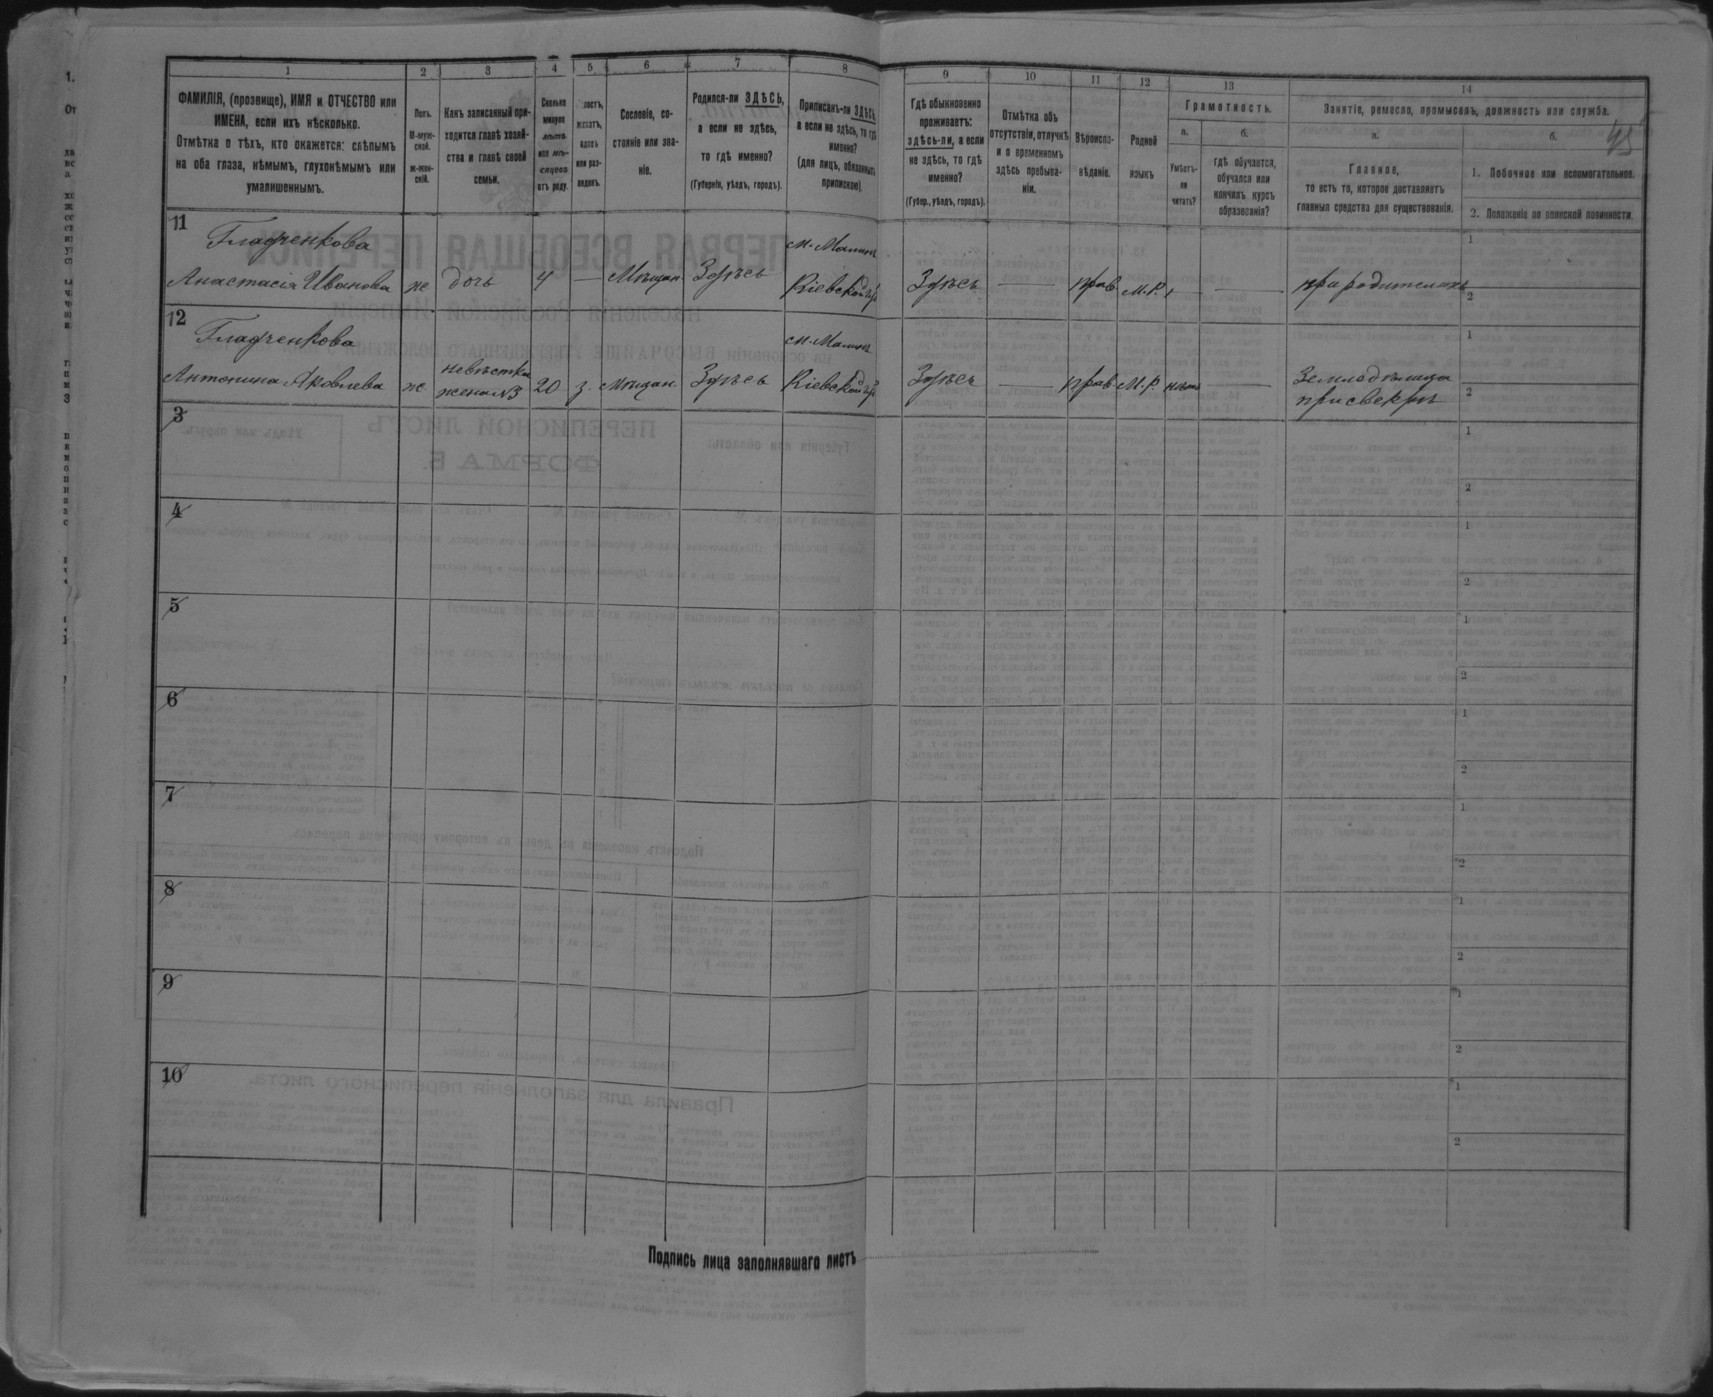 1 2 3 4 5 6 7 8 9 10 11 12 13 14
ФАМИЛІЯ, (прозвище), ИМЯ и ОТЧЕСТВО или
ИМЕНА, если ихъ нѣсколько.
Отмѣтка о тѣхъ, кто окажется: слѣпымъ
на оба глаза, нѣмымъ, глухонѣмымъ или
умалишеннымъ.
Полъ.
М-муж-
ской.
ж-жен-
скій.
Какъ записанный при-
ходится главѣ хозяй-
ства и главѣ своей
семьи.
Сколько
минуло
лѣтъ
или мѣ-
сяцевъ
отъ роду.
лостъ,
женатъ,
вдовъ
или раз-
веденъ.
Сословіе, со-
стояніе или зва-
ніе.
Родился-ли ЗДѢСЬ,
а если не здѣсь,
то гдѣ именно?
(Губернія, уѣздъ, городъ).
Приписанъ-ли ЗДѢСЬ,
а если не здѣсь, то гдѣ
именно?
(для лицъ, обязанныхъ
припискою).
Гдѣ обыкновенно
проживаетъ:
здѣсь-ли, а если
не здѣсь, то гдѣ
именно?
(Губер., уѣздъ, городъ).
Отмѣтка объ
отсутствіи, отлучкѣ
и о временномъ
здѣсь пребыва-
ніи.
Вѣроиспо-
вѣданіе.
Родной
языкъ
Грамотность.
а.
Умѣетъ-
ли
читать?
б.
гдѣ обучается,
обучался или
кончилъ курсъ
образованія?
Занятіе, ремесло, промыселъ, должность или служба.
45
а.
Главное,
то есть то, которое доставляетъ
главныя средства для существованія.
б.
1. Побочное или вспомогательное.
2. Положеніе по воинской повинности.
11
Гладченкова м. Малинъ 1
Анастасія Иванова ж дочь 4 — Мѣщан. Здѣсь Кіевской губ Здѣсь — прав М.Р. — при родителяхъ 2
12
Гладченкова м. Малинъ 1
Антонина Яковлева ж невѣстка
жена №3 20 з. Мѣщан. Здѣсь Кіевской губ Здѣсь — прав М.Р. нѣтъ — Земледѣлица
при свекрѣ 2
3 1
2
4 1
2
5 1
2
6 1
2
7 1
2
8 1
2
9 1
2
10 1
2
Подпись лица заполнявшаго листъ